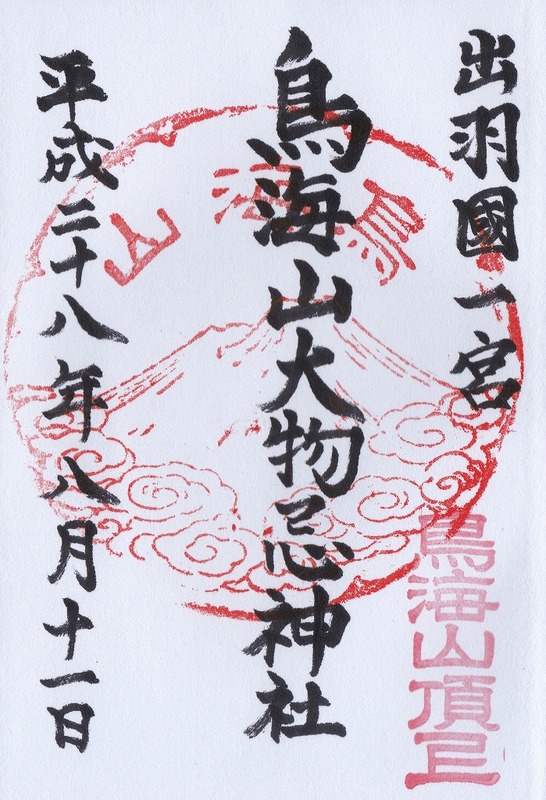 出羽國一宮
鳥海山大物忌神社
平成二十八年八月十一日
鳥海山
鳥海山頂上